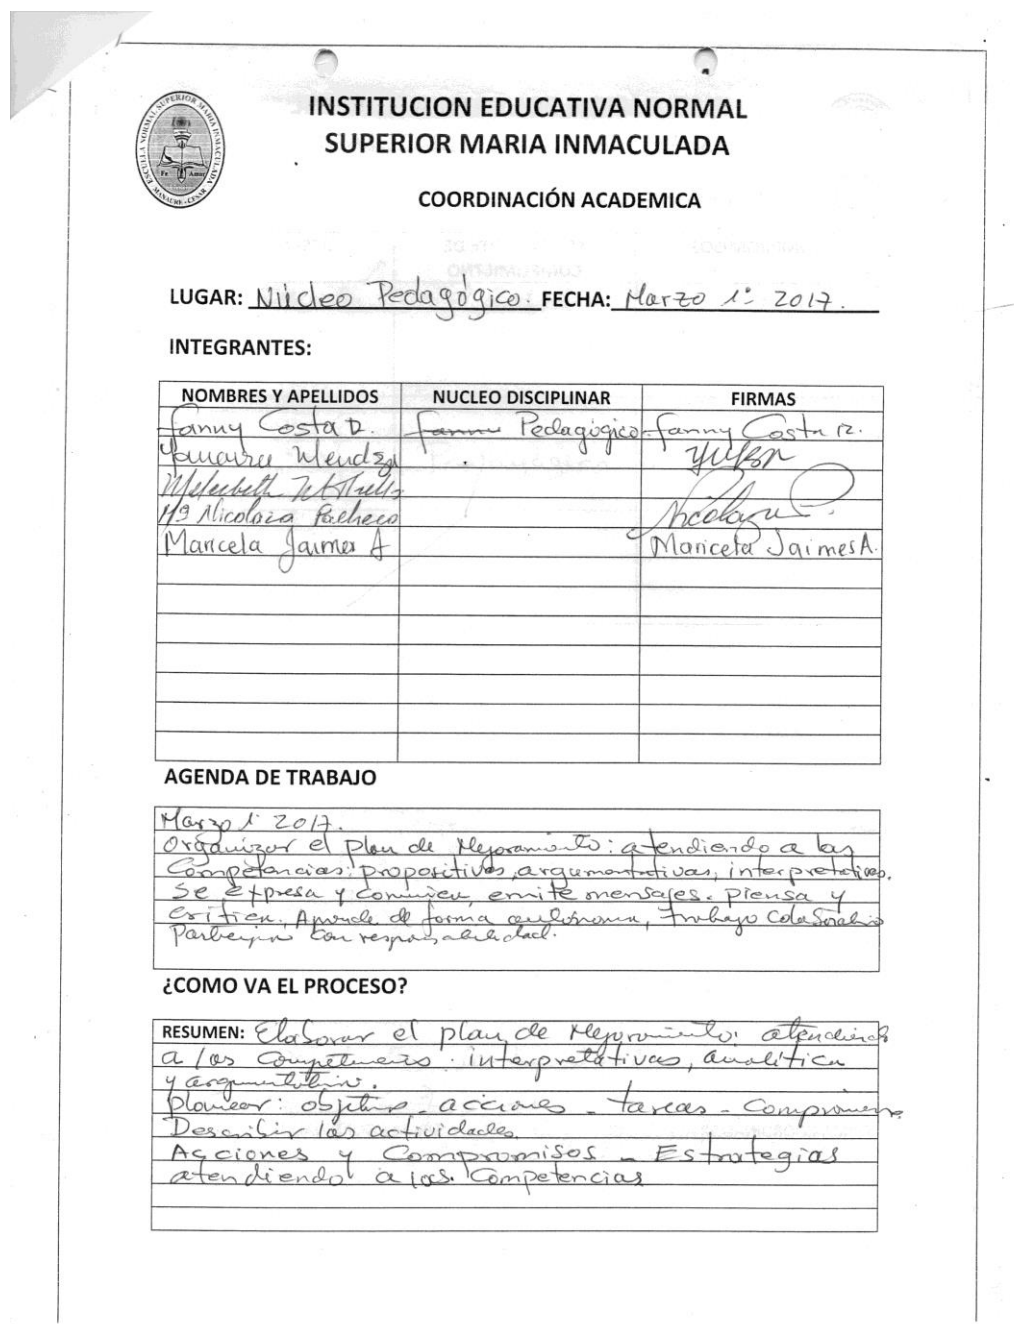 INSTITUCION EDUCATIVA NORMAL
SUPERIOR MARIA INMACULADA
ESCUELA NORMAL SUPERIOR MARIA INMACULADA
Fe Amor
MANAURE - CESAR
COORDINACIÓN ACADEMICA
LUGAR: Núcleo Pedagógico. FECHA: Marzo 1º 2017.
INTEGRANTES:
NOMBRES Y APELLIDOS NUCLEO DISCIPLINAR FIRMAS
Fanny Costa R. Pedagógico Fanny Costa R.
Mendoza
Mª Nicolaza Pacheco Nicolaza P.
Maricela Jaimes A Maricela Jaimes A.
AGENDA DE TRABAJO
Marzo 1º 2017.
Organizar el plan de Mejoramiento: atendiendo a las
Competencias: propositivas, argumentativas, interpretativas.
Se expresa y comunica, emite mensajes. Piensa y
critica. Aprende de forma autónoma, Trabajo Colaborativo
Participa con responsabilidad.
¿COMO VA EL PROCESO?
RESUMEN: Elaborar el plan de Mejoramiento: atendiendo
a las competencias: interpretativas, analítica
y argumentativa.
Planear: objetivos - acciones - tareas - Compromisos
Describir las actividades.
Acciones y Compromisos - Estrategias
atendiendo a las. Competencias